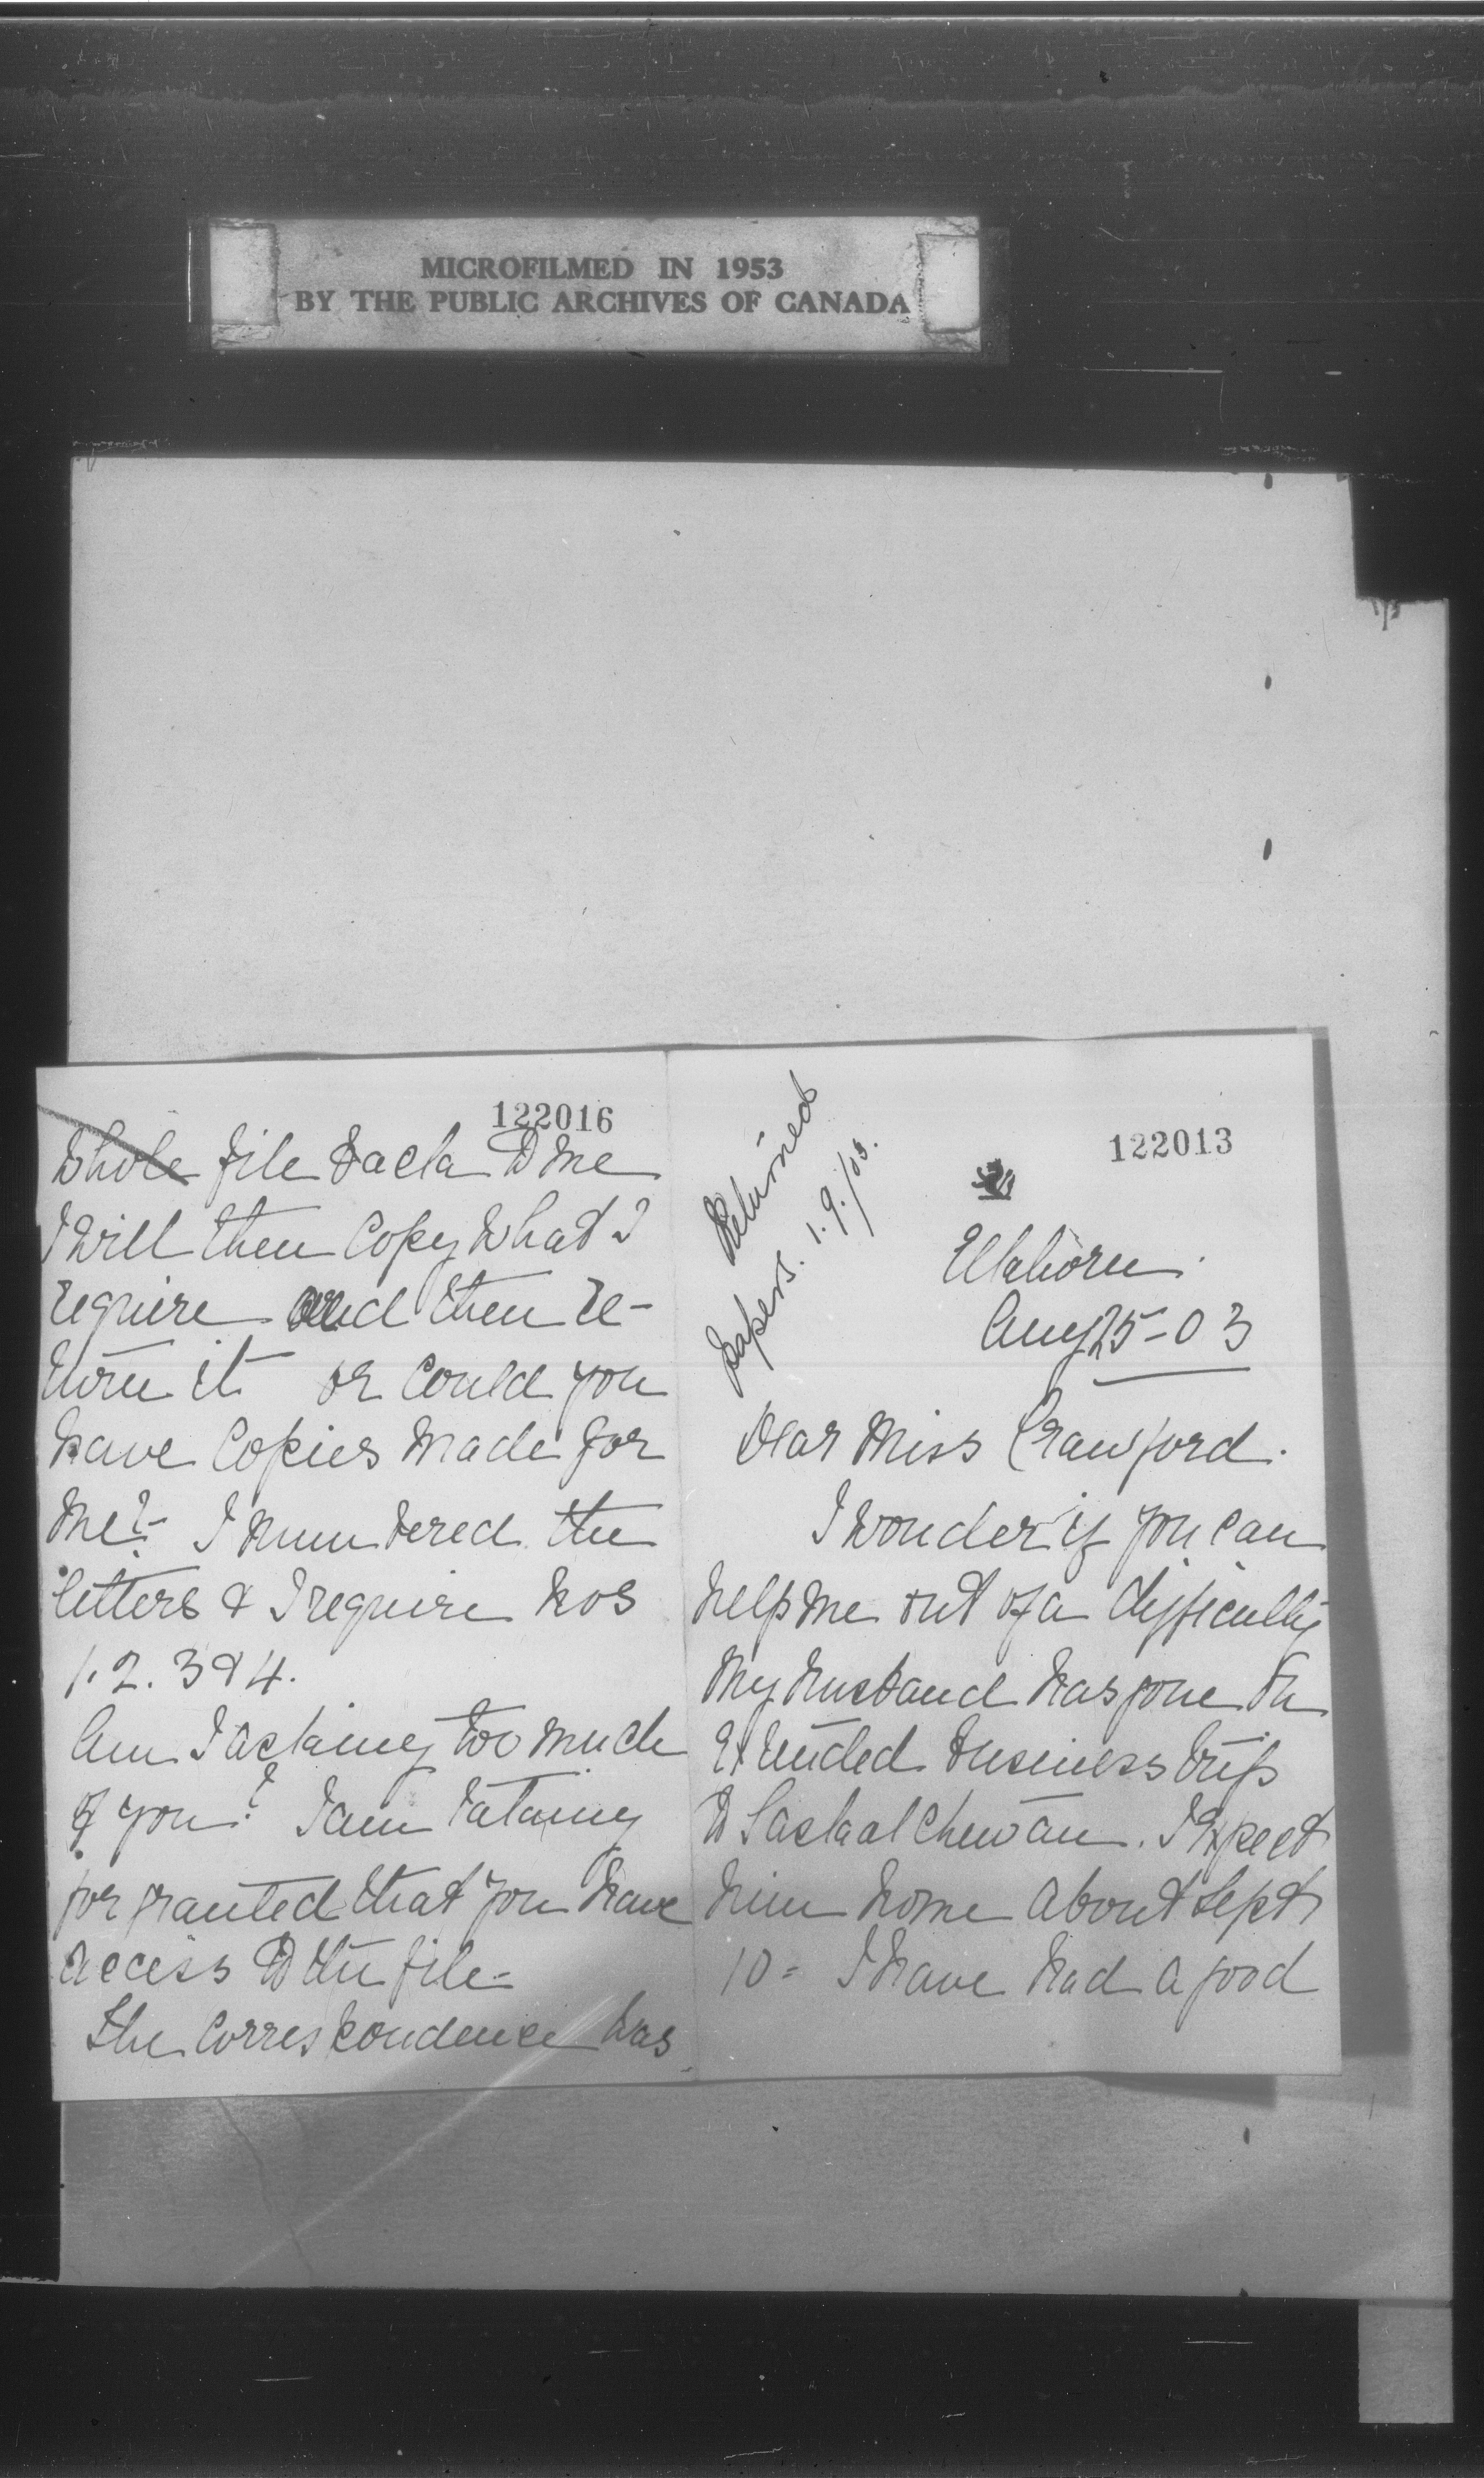 MICROFILMED IN 1953
BY THE PUBLIC ARCHIVES OF CANADA
122016
whole file back to me
I will then copy what I
require and then re-
turn it or could you
have copies made for
me?- I numbered the
letters & I require nos
1. 2. 3 & 4.
Am I asking too much
of you? I am taking
for granted that you have
access to the file-
The correspondence was
Returned
papers. 1.9./03.
122013
Aug 25-03
Dear Miss Crawford.
I wonder if you can
help me out of a difficulty
My husband has gone on
extended business trip
to Saskatchewan. I expect
him home about Sept
10 = I have had a good